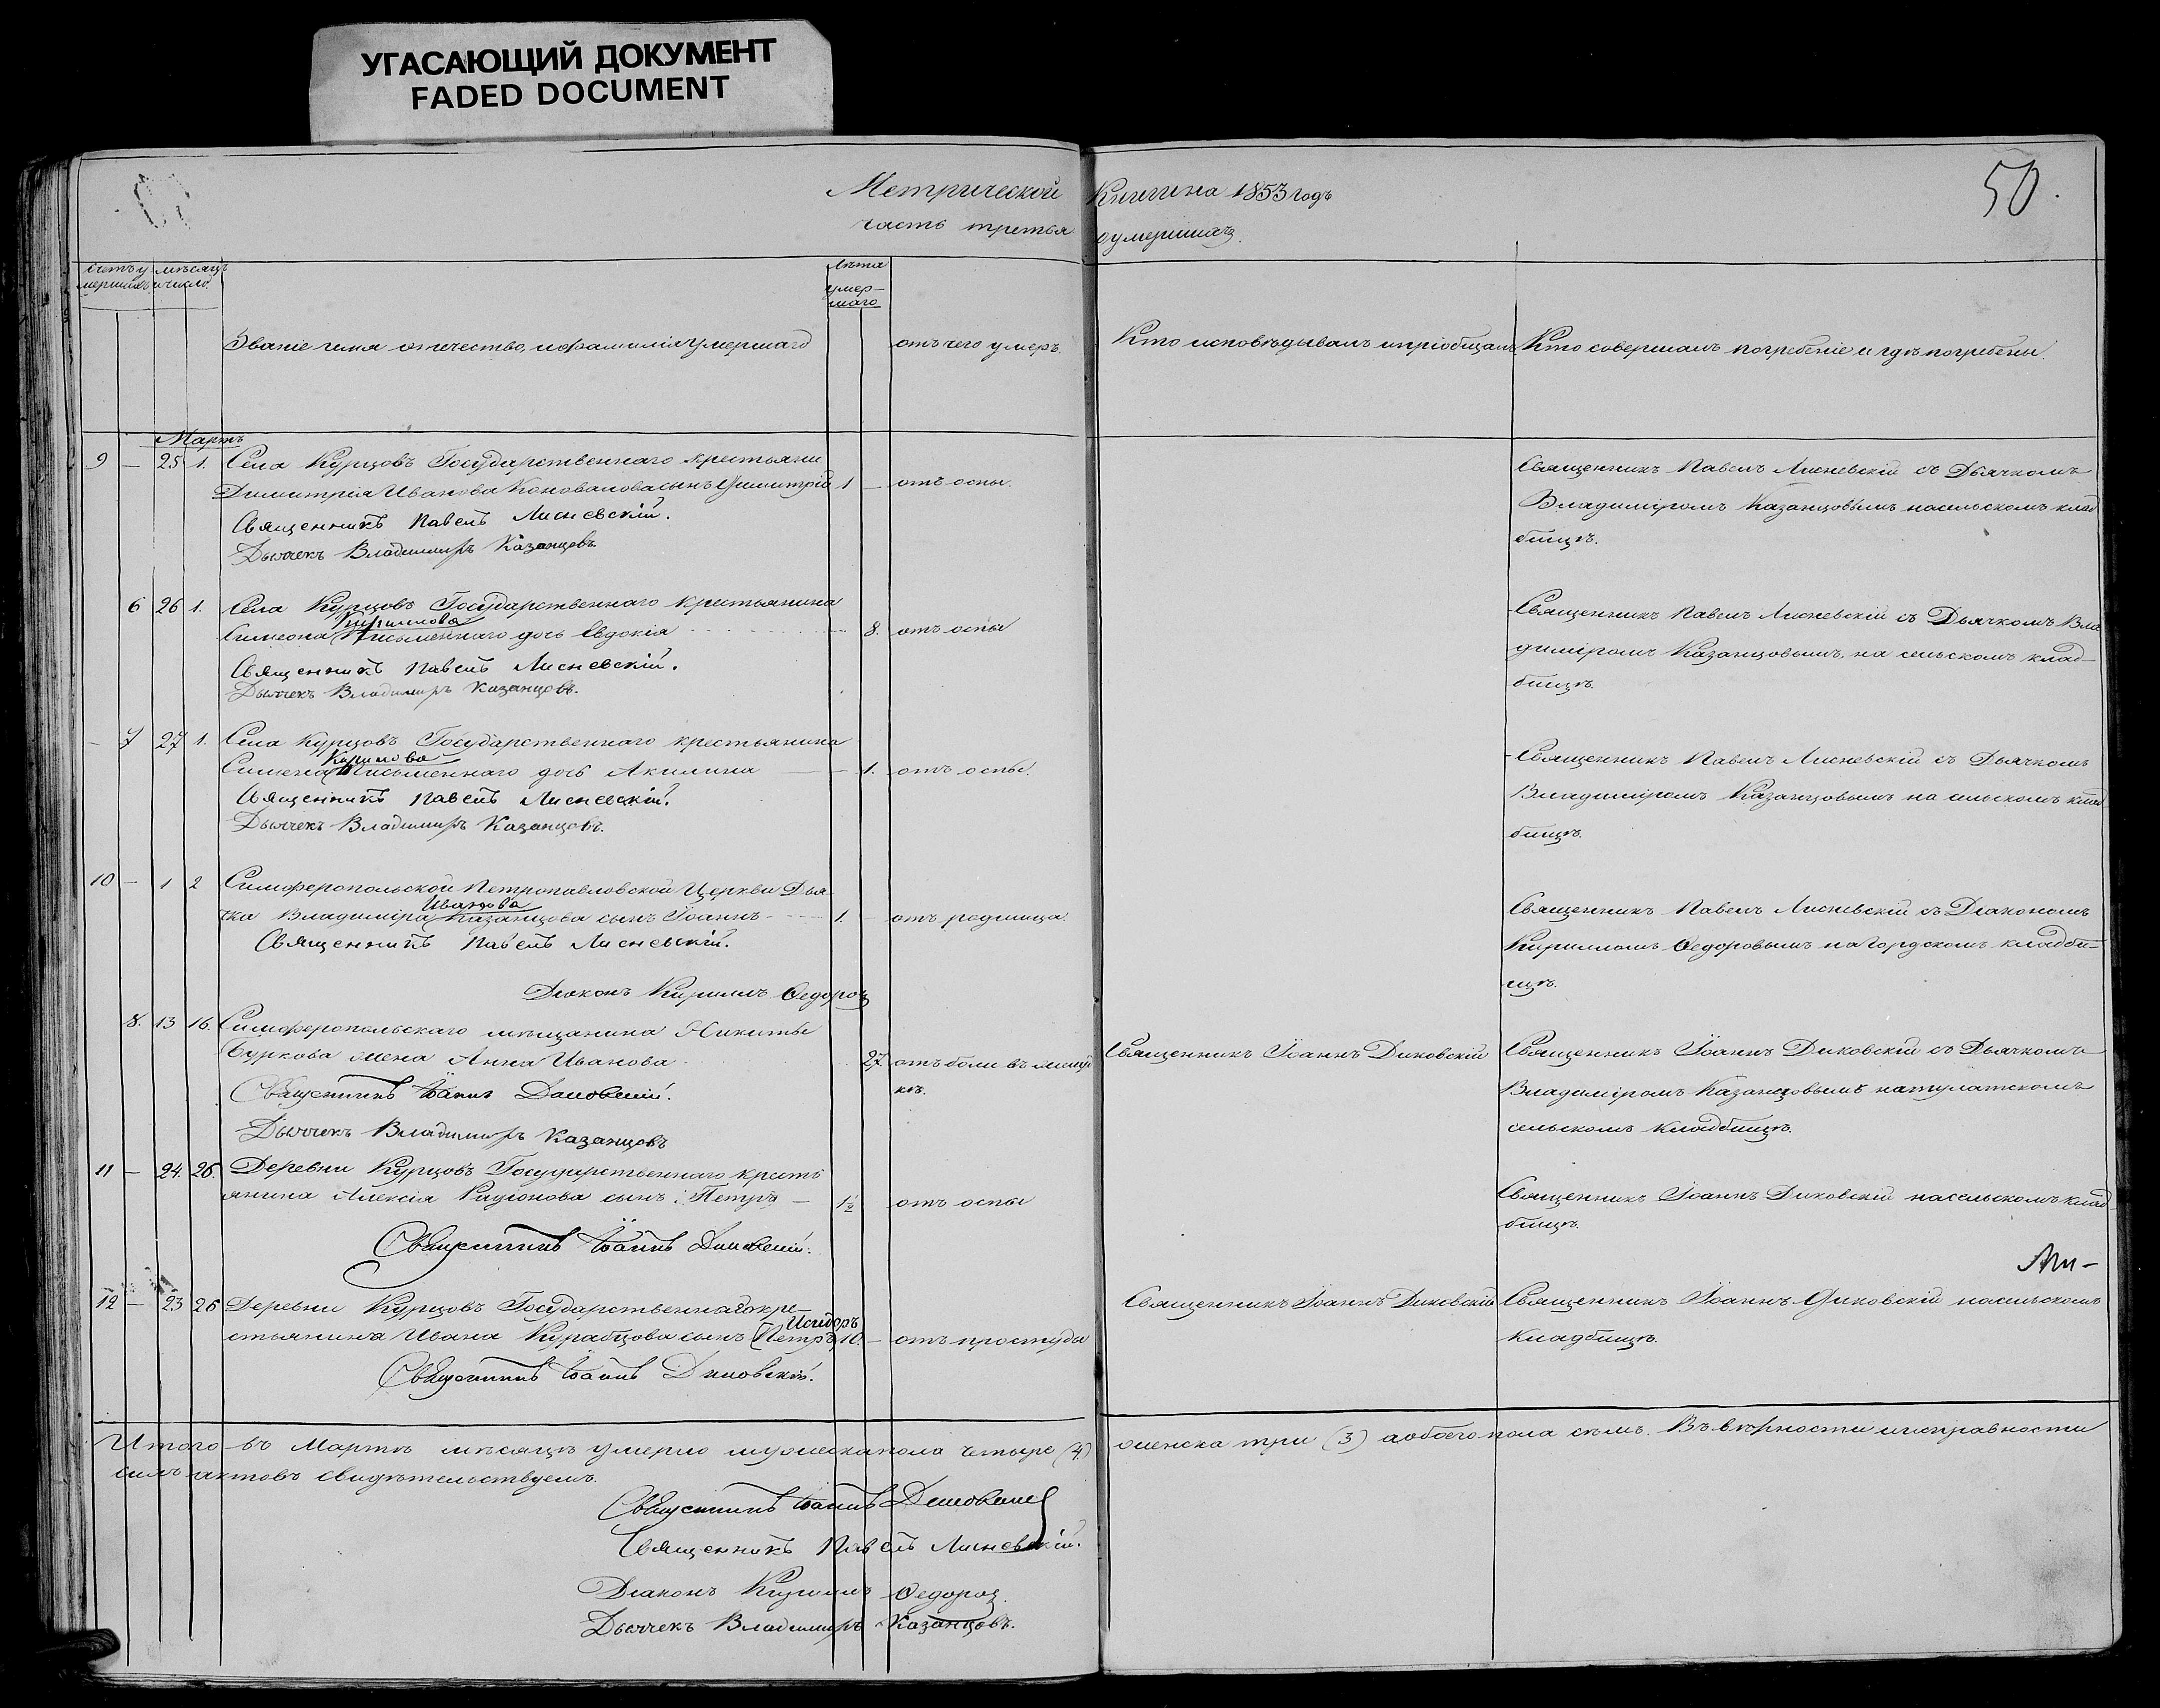 УГАСАЮЩИЙ ДОКУМЕНТ
FADED DOCUMENT
50.
Метрической Книги на 1853 годъ
часть третья о умершихъ.
Счетъ умершихъ
мѣсяцъ и число
Званіе имя отчество, и фамилія умершаго
Лѣта умер-
шаго
отъ чего умеръ
Кто исповѣдывалъ и пріобщалъ
Кто совершалъ погребеніе и гдѣ погребены.
Мартъ
9 — 25 1. Села Курцовъ Государственнаго крестьяни
Димитрія Иванова Коновалова сынъ Димитрій 1 — отъ оспы.
Священникъ Павелъ Лисневскій.
Дьячекъ Владимиръ Казанцовъ.
Священникъ Павелъ Лисневскій съ Дьячкомъ
Владиміромъ Казанцовымъ на сельскомъ клад
бищѣ.
6 26 1. Села Курцовъ Государственнаго крестьянина
Кирилова
Симеона Письменнаго дочь Евдокія 8. отъ оспы
Священникъ Павелъ Лисневскій.
Дьячекъ Владимиръ Казанцовъ.
Священникъ Павелъ Лисневскій съ Дьячкомъ Вла
диміромъ Казанцовымъ, на сельскомъ клад-
бищѣ.
7 27 1. Села Курцовъ Государственнаго крестьянина
Кирилова
Симеона Письменнаго дочь Акилина — 1. отъ оспы.
Священникъ Павелъ Лисневскій.
Дьячекъ Владимиръ Казанцовъ.
Священникъ Павелъ Лисневскій съ Дьячкомъ
Владиміромъ Казанцовымъ на сельскомъ клад
бищѣ.
10 — 1 2 Симферопольской Петропавловской Церкви Дья-
Иванова
чка Владиміра Казанцова сынъ Іоаннъ 1. — отъ родимца.
Священникъ Павелъ Лисневскій.
Діаконъ Кириллъ Ѳедоровъ
Священникъ Павелъ Лисневскій съ Діакономъ
Кирилломъ Ѳедоровымъ на Городскомъ кладби-
щѣ.
8. 13 16. Симферопольскаго мѣщанина Никиты
Буркова жена Анна Иванова 27 отъ боли въ
кѣ.
Священникъ Іоаннъ Диковскій.
Дьячекъ Владимиръ Казанцовъ
Священникъ Іоаннъ Диковскій
Священникъ Іоаннъ Диковскій съ Дьячкомъ
Владиміромъ Казанцовымъ на
сельскомъ кладбищѣ.
11 — 24. 26. Деревни Курцовъ Государственнаго кресть
янина Алексія Родіонова сынъ Петръ — 1½ отъ оспы
Священникъ Іоаннъ Диковскій.
Священникъ Іоаннъ Диковскій на сельскомъ клад-
бищѣ.
12 — 23 26 Деревни Курцовъ Государственнаго кре-
Исидоръ
стьянина Ивана Курабцова сынъ (Петръ) 10. — отъ простуды
Священникъ Іоаннъ Диковскій.
Священникъ Іоаннъ Диковскій
Священникъ Іоаннъ Диковскій на сельскомъ
кладбищѣ.
Итого въ Мартѣ мѣсяцѣ умерло мужеска пола четыре (4) женска три (3) а обоего пола семь. Въ вѣрности и исправности
сихъ актовъ свидѣтельствуемъ.
Священникъ Іоаннъ Диковскій
Священникъ Павелъ Лисневскій.
Діаконъ Кириллъ Ѳедоровъ.
Дьячекъ Владимиръ Казанцовъ.